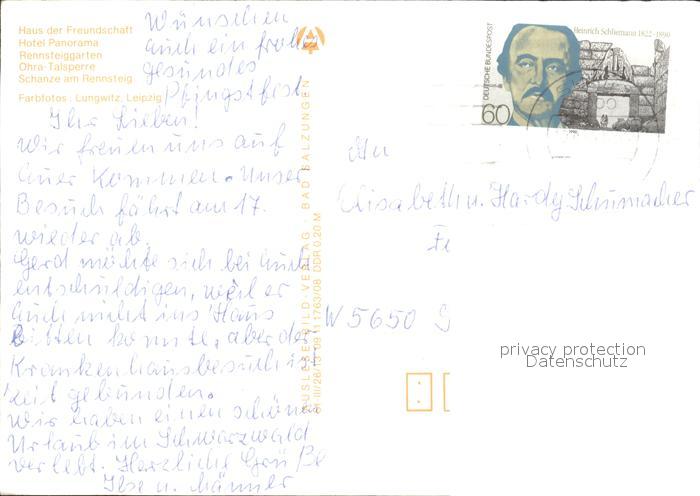 Haus der Freundschaft
Hotel Panorama
Rennsteiggarten
Ohra-Talsperre
Schanze am Rennsteig
Farbfotos: Lungwitz, Leipzig
Wünschen
auch ein frohes
gesundes
Pfingstfest
Ihr Lieben!
Wir freuen uns auf
Euer Kommen. Unser
Besuch fährt am 17.
wieder ab.
Gerd möchte sich bei Euch
entschuldigen, weil er
Euch nicht ins Haus
bitten konnte, aber der
Krankenhausbesuch ist
zeit gebunden.
Wir haben einen schönen
Urlaub im Schwarzwald
verlebt. Herzliche Grüße
Ilse u. Männer
AUSLESE-BILD-VERLAG · BAD SALZUNGEN
01 III/26/13 09 11 1763/08 DDR 0,20 M
DEUTSCHE BUNDESPOST
60
Heinrich Schliemann 1822-1890
1990
An
Elisabeth u. Hardy Schumacher
Fe
W 5650 S
privacy protection
Datenschutz